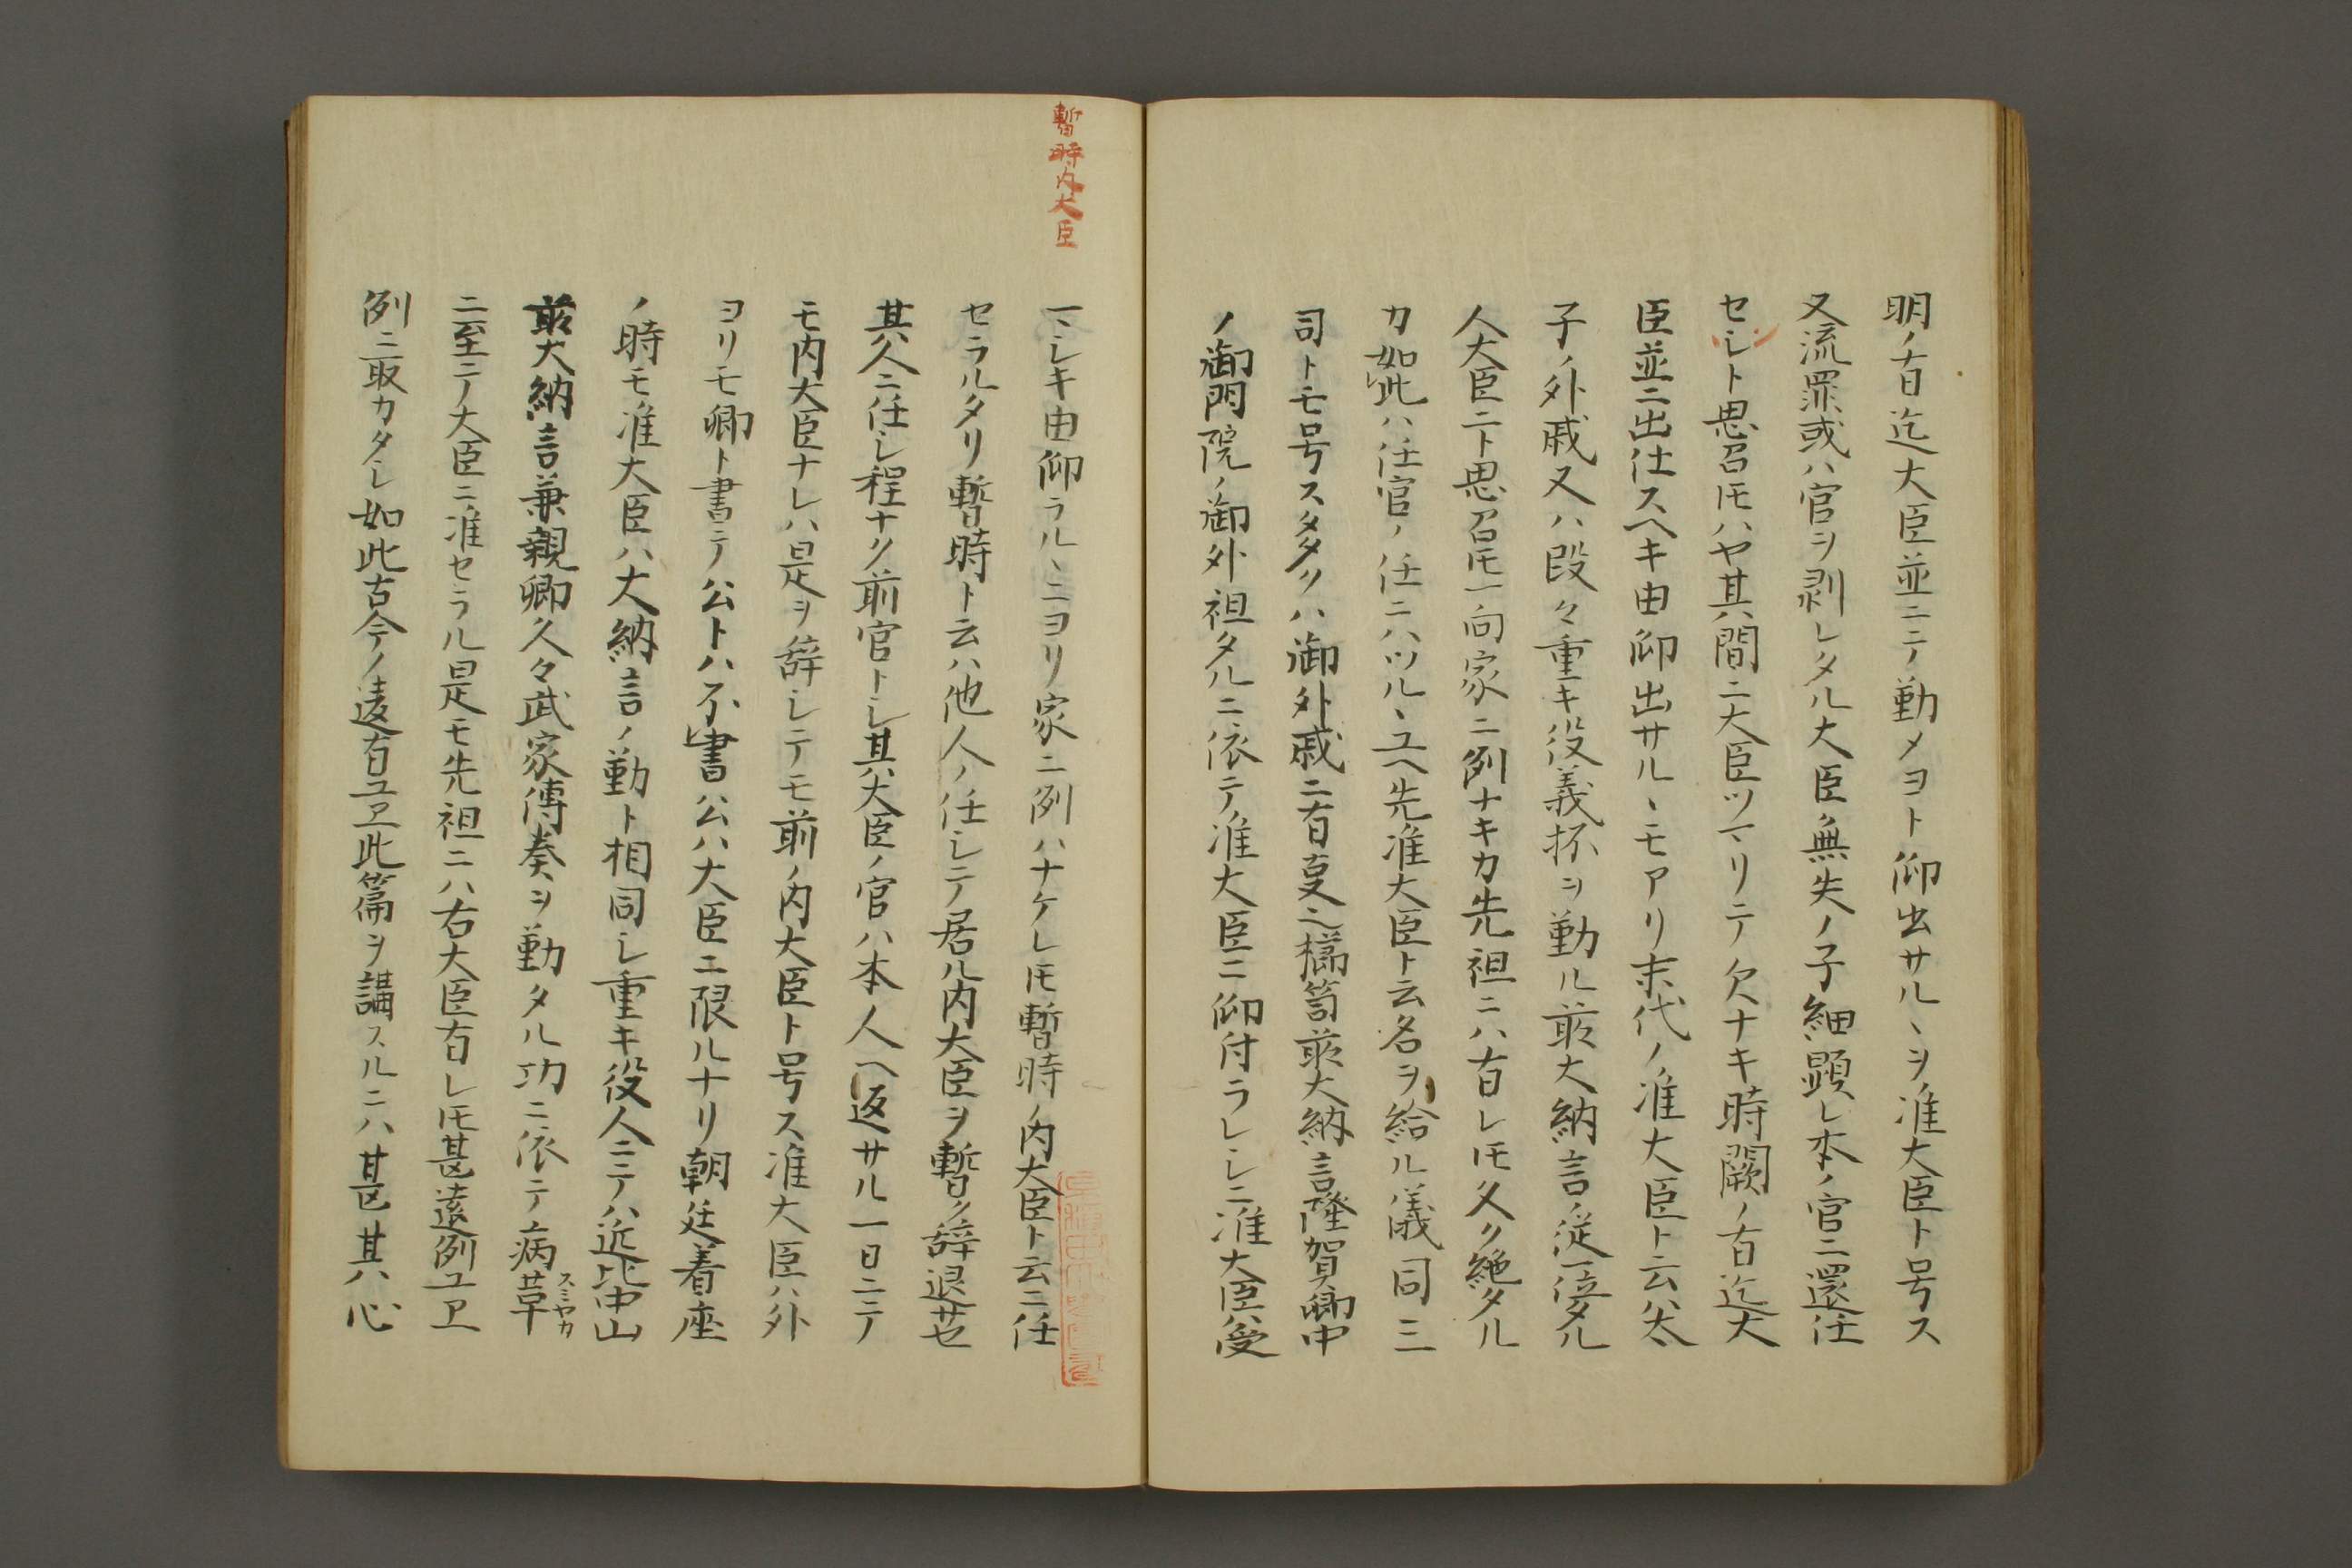 明ノ有迄大臣並ニテ勤メヨト仰出サルヽヲ准大臣ト号ス
又流罪或ハ官ヲ剥レタル大臣無失ノ子細顕レ本ノ官ニ還任
セレト思召𪜈ハヤ其間ニ大臣ツマリテ欠ナキ時闕ノ有迄大
臣並ニ出仕スヘキ由仰出サルヽモアリ末代ノ准大臣ト云ハ太
子ノ外戚又ハ段々重キ役義抔ヲ勤ル前大納言ノ従一位タル
人大臣ニト思召𪜈一向家ニ例ナキカ先祖ニハ有レ𪜈久ク絶タル
カ如此ハ任官ノ任ニハツルヽユヘ先准大臣ト云名ヲ給ル儀同三
司トモ号ス多クハ御外戚ニ有夏之櫛笥前大納言隆賀卿中
ノ御門院ノ御外祖タルニ依テ准大臣ニ仰付ラレシニ准大臣ハ受
暫時内大臣
マシキ由仰ラルヽニヨリ家ニ例ハナケレ𪜈暫時ノ内大臣ト云ニ任
セラルタリ暫時ト云ハ他人ノ任シテ居ル内大臣ヲ暫ク辞退サセ
其人ニ任シ程ナク前官トシ其大臣ノ官ハ本人ヘ返サル一日ニテ
モ内大臣ナレハ是ヲ辞シテモ前ノ内大臣ト号ス准大臣ハ外
ヨリモ卿ト書テ公トハ不書公ハ大臣ニ限ルナリ朝廷着座
ノ時モ准大臣ハ大納言ノ勤ト相同シ重キ役人ニテハ近比中山
前大納言兼親卿久々武家傳奏ヲ勤タル功ニ依テ病革スミヤカ
ニ至ニテ大臣ニ准セラル是モ先祖ニハ右大臣有レ𪜈甚遠例ユヱ
例ニ取カタシ如此古今ノ違有ユヱ此篇ヲ講スルニハ甚其心